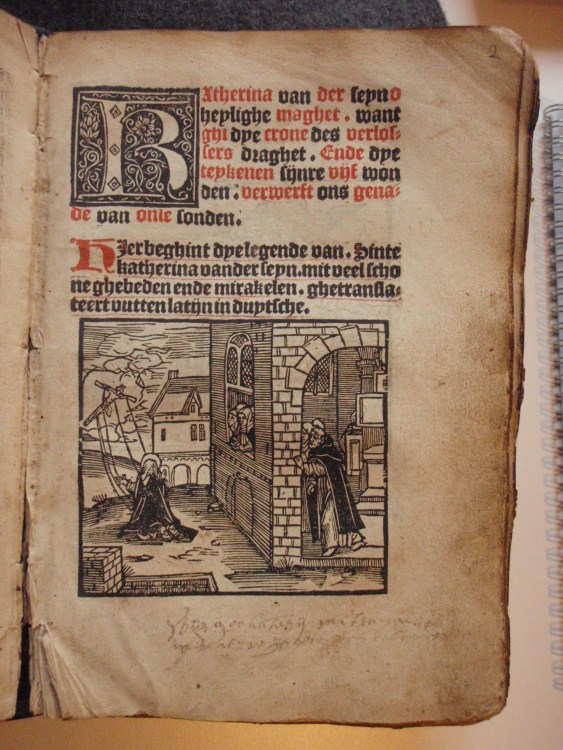 2
KAtherina van der seyn o
heylighe maghet . want
ghi dye crone des verlos=
sers draghet . Ende dye
teykenen sijnre vijf won
den . verwerft ons gena=
de van onse sonden.
HIer beghint dye legende van . Sinte
katherina vander seyn. mit veel scho
ne ghebeden ende mirakelen . ghetransla=
teert vutten latijn in duytsche.